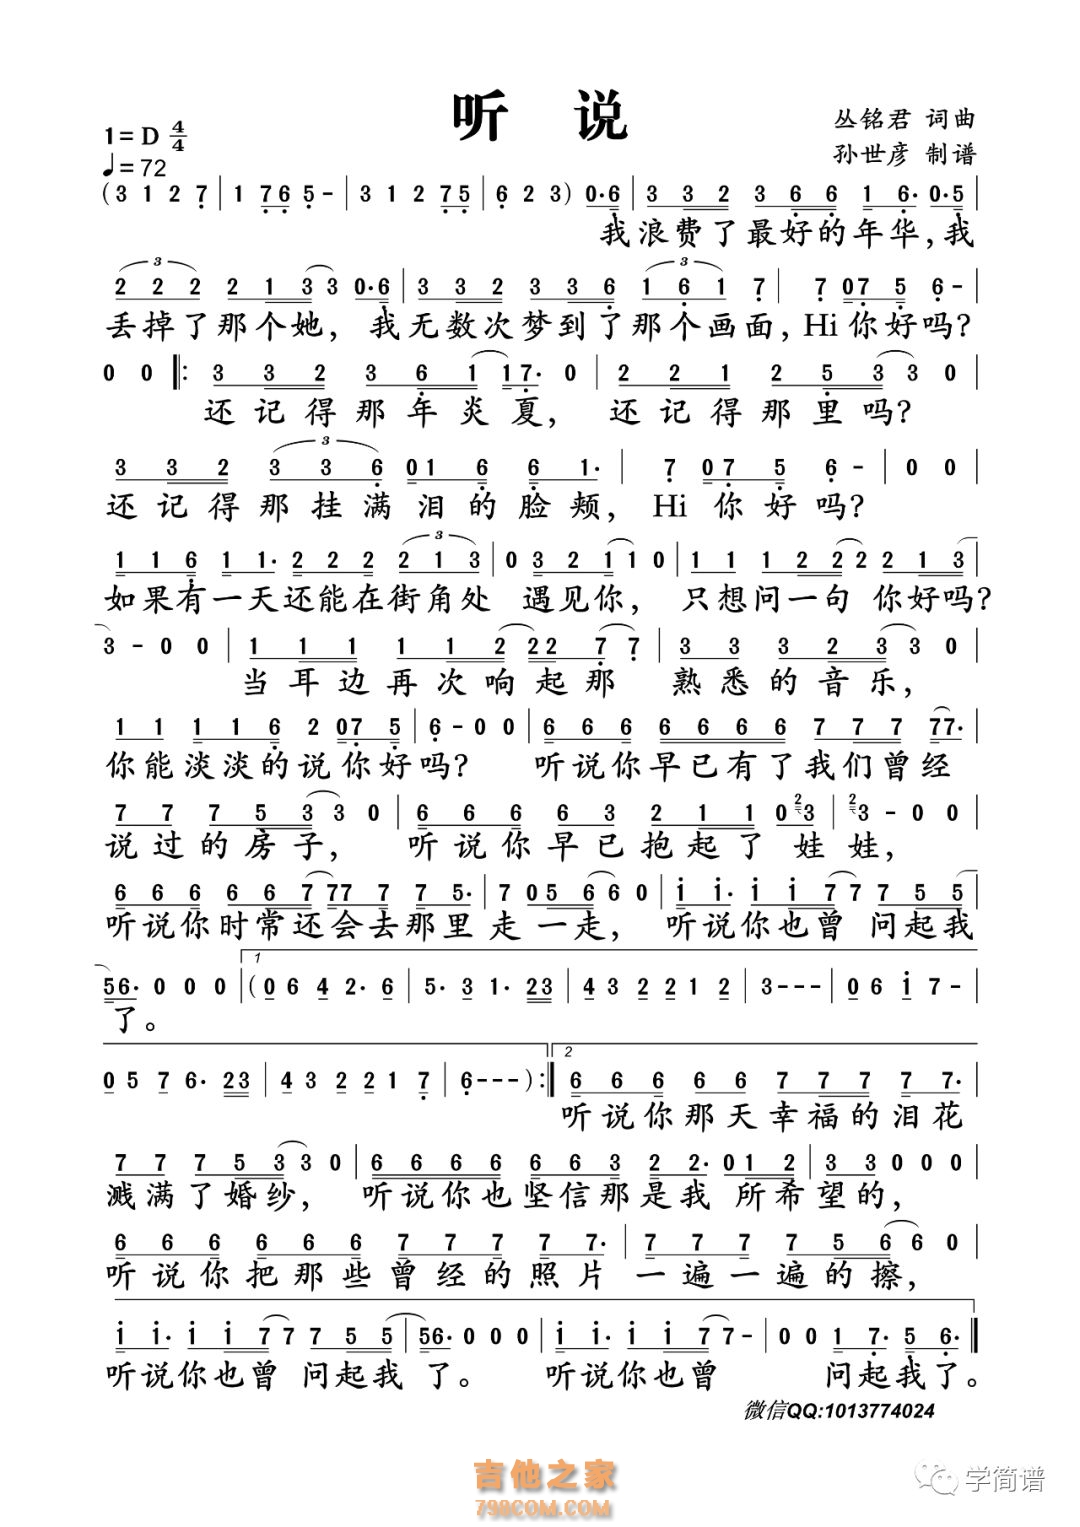 听 说
1=D 4/4
丛铭君 词曲
孙世彦 制谱
♩=72
(3 1 2 7 | 1 7 6 5 - | 3 1 2 7 5 | 6 2 3) 0·6 | 3 3 2 3 6 6 1 6· 0·5 |
我浪费了最好的年华,我
2 2 2 2 1 3 3 0·6 | 3 3 2 3 3 6 1 6 1 7 | 7 0 7 5 6 - |
丢掉了那个她, 我无数次梦到了那个画面,Hi你好吗?
0 0 ‖: 3 3 2 3 6 1 1 7· 0 | 2 2 1 2 5 3 3 0 |
还记得那年炎夏, 还记得那里吗?
3 3 2 3 3 6 0 1 6 6 1· | 7 0 7 5 6 - | 0 0 |
还记得那挂满泪的脸颊, Hi 你好吗?
1 1 6 1 1· 2 2 2 2 1 3 | 0 3 2 1 1 0 | 1 1 1 2 2 2 2 1 3 |
如果有一天还能在街角处 遇见你, 只想问一句 你好吗?
3 - 0 0 | 1 1 1 1 1 2 2 2 7 7 | 3 3 3 2 3 3 0 |
当耳边再次响起那 熟悉的音乐,
1 1 1 1 6 2 0 7 5 | 6 - 0 0 | 6 6 6 6 6 6 6 7 7 7 7 7· |
你能淡淡的说你好吗? 听说你早已有了我们曾经
7 7 7 5 3 3 0 | 6 6 6 6 3 2 1 1 0 2 3 | 2 3 - 0 0 |
说过的房子, 听说你早已抱起了 娃娃,
6 6 6 6 6 7 7 7 7 7 5· | 7 0 5 6 6 0 | 1 1· 1 1 7 7 7 5 5 |
听说你时常还会去那里 走一走, 听说你也曾 问起我
5 6· 0 0 0 | 1 (0 6 4 2· 6 | 5· 3 1· 2 3 | 4 3 2 2 1 2 | 3 - - - | 0 6 1 7 - |
了。
0 5 7 6· 2 3 | 4 3 2 2 1 7 | 6 - - - ) :‖ 2 6 6 6 6 6 7 7 7 7 7· |
听说你那天幸福的泪花
7 7 7 5 3 3 0 | 6 6 6 6 6 6 3 2 2· 0 1 2 | 3 3 0 0 0 |
溅满了婚纱, 听说你也坚信那是我 所希望的,
6 6 6 6 6 6 7 7 7 7 7· | 7 7 7 7 5 6 6 0 |
听说你把那些曾经的照片 一遍一遍的擦,
1 1· 1 1 7 7 7 5 5 | 5 6· 0 0 0 | 1 1· 1 1 7 7 - | 0 0 1 7· 5 6· ‖
听说你也曾 问起我 了。 听说你也曾 问起我了。
微信QQ:1013774024
吉他之家
798COM.COM
学简谱